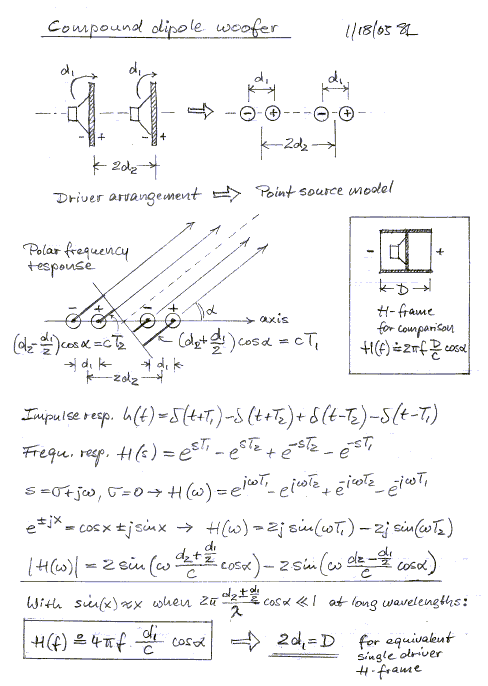 Compound dipole woofer 1/18/05 SL
d₁ d₁ d₁ d₁
- + - + - + - +
2d₂ 2d₂
Driver arrangement ⇒ Point source model
Polar frequency
response
- + - + α axis
(d₂-d₁/2)cosα=cT₂ (d₂+d₁/2)cosα=cT₁
d₁ d₁
2d₂
- +
D
H-frame
for comparison
H(f)≐2πf D/c cosα
Impulse resp. h(t)=δ(t+T₁)-δ(t+T₂)+δ(t-T₂)-δ(t-T₁)
Frequ. resp. H(s)=e^sT₁-e^sT₂+e^-sT₂-e^-sT₁
s=σ+jω, σ=0→H(ω)=e^jωT₁-e^jωT₂+e^-jωT₂-e^-jωT₁
e^±jx=cosx±jsinx → H(ω)=2j sin(ωT₁)-2j sin(ωT₂)
|H(ω)|=2 sin(ω (d₂+d₁/2)/c cosα)-2 sin(ω (d₂-d₁/2)/c cosα)
With sin(x)≈x when 2π (d₂±d₁/2)/λ cosα≪1 at long wavelengths:
H(f)≐4πf d₁/c cosα ⇒ 2d₁=D for equivalent
single driver
H-frame